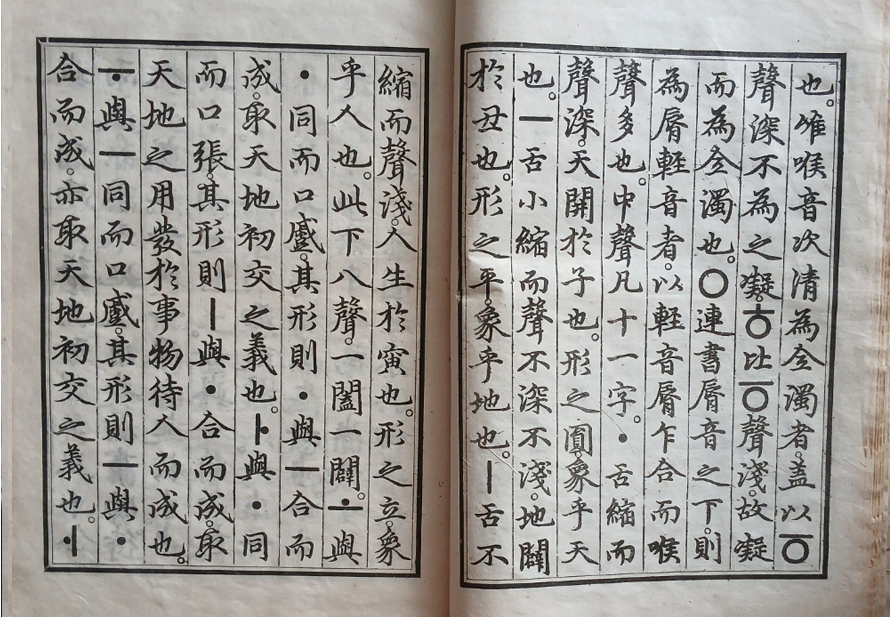 也。唯喉音次清為全濁者。盖以ㆆ
聲深不為之凝。ㅎ比ㆆ聲淺。故凝
而為全濁也。ㅇ連書脣音之下。則
為脣軽音者。以軽音脣乍合而喉
聲多也。中聲凡十一字。ㆍ舌縮而
聲深。天開於子也。形之圓。象乎天
也。ㅡ舌小縮而聲不深不淺。地闢
於丑也。形之平。象乎地也。ㅣ舌不
縮而聲淺。人生於寅也。形之立。象
乎人也。此下八聲。一闔一闢。ㅗ與
ㆍ同而口蹙。其形則ㆍ與ㅡ合而
成。取天地初交之義也。ㅏ與ㆍ同
而口張。其形則ㅣ與ㆍ合而成。取
天地之用發於事物待人而成也。
ㅜ與ㅡ同而口蹙。其形則ㅡ與ㆍ
合而成。亦取天地初交之義也。ㅓ